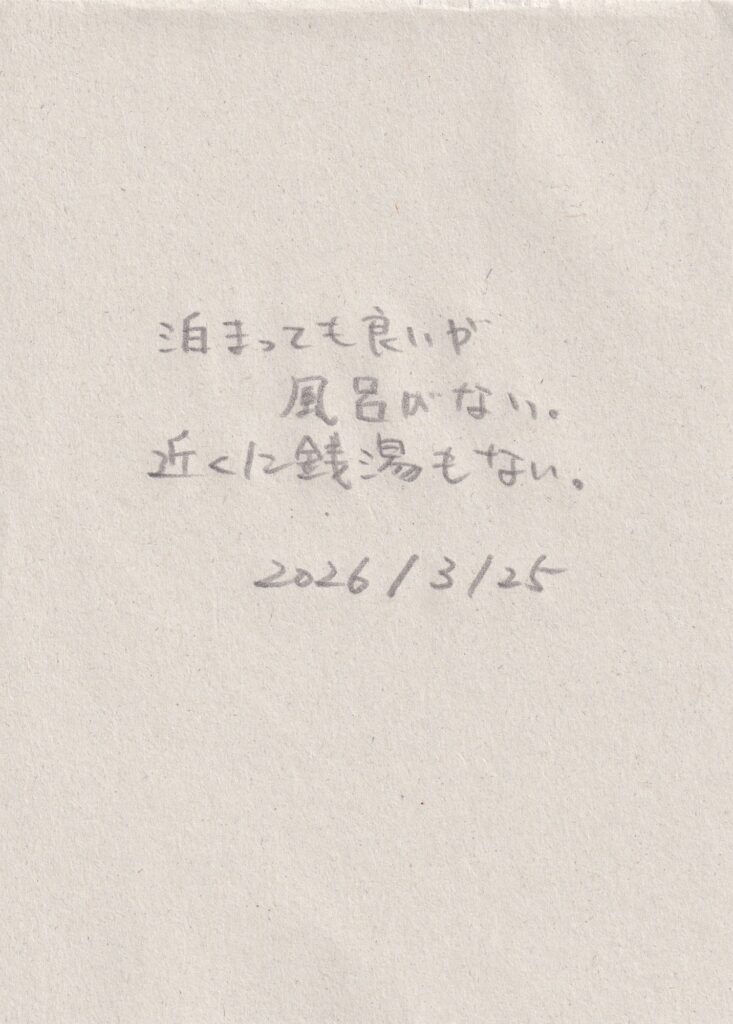 泊まっても良いが
風呂がない。
近くに銭湯もない。
2026/3/25